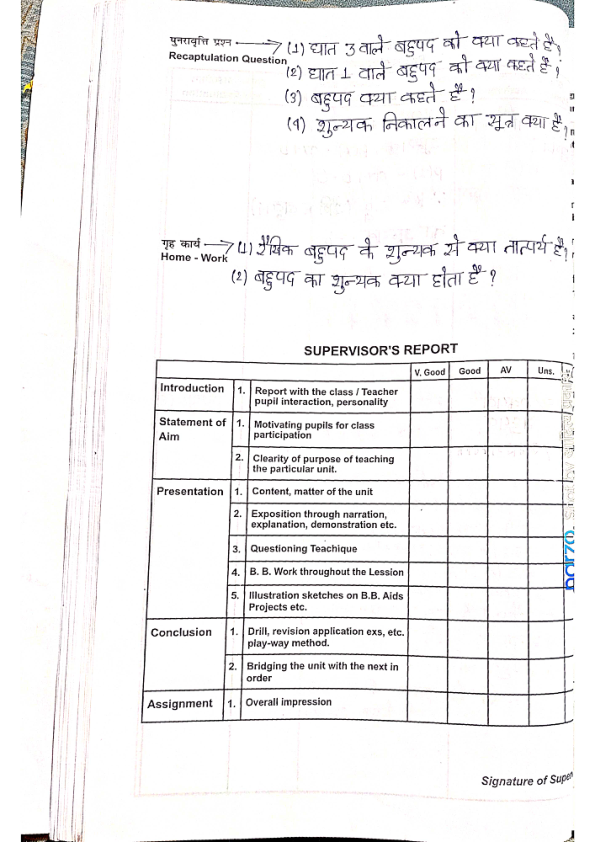 पुनरावृत्ति प्रश्न → (1) घात 3 वाले बहुपद को क्या कहते हैं?
Recaptulation Question
(2) घात 1 वाले बहुपद को क्या कहते हैं?
(3) बहुपद क्या कहते हैं?
(4) शुन्यक निकालने का सूत्र क्या है?
गृह कार्य → (1) रैखिक बहुपद के शुन्यक से क्या तात्पर्य है?
Home - Work
(2) बहुपद का शुन्यक क्या होता है?
SUPERVISOR'S REPORT
V. Good Good AV Uns.
Introduction 1. Report with the class / Teacher
pupil interaction, personality
Statement of 1. Motivating pupils for class
Aim participation
2. Clearity of purpose of teaching
the particular unit.
Presentation 1. Content, matter of the unit
2. Exposition through narration,
explanation, demonstration etc.
3. Questioning Teachique
4. B. B. Work throughout the Lession
5. Illustration sketches on B.B. Aids
Projects etc.
Conclusion 1. Drill, revision application exs, etc.
play-way method.
2. Bridging the unit with the next in
order
Assignment 1. Overall impression
Signature of Super